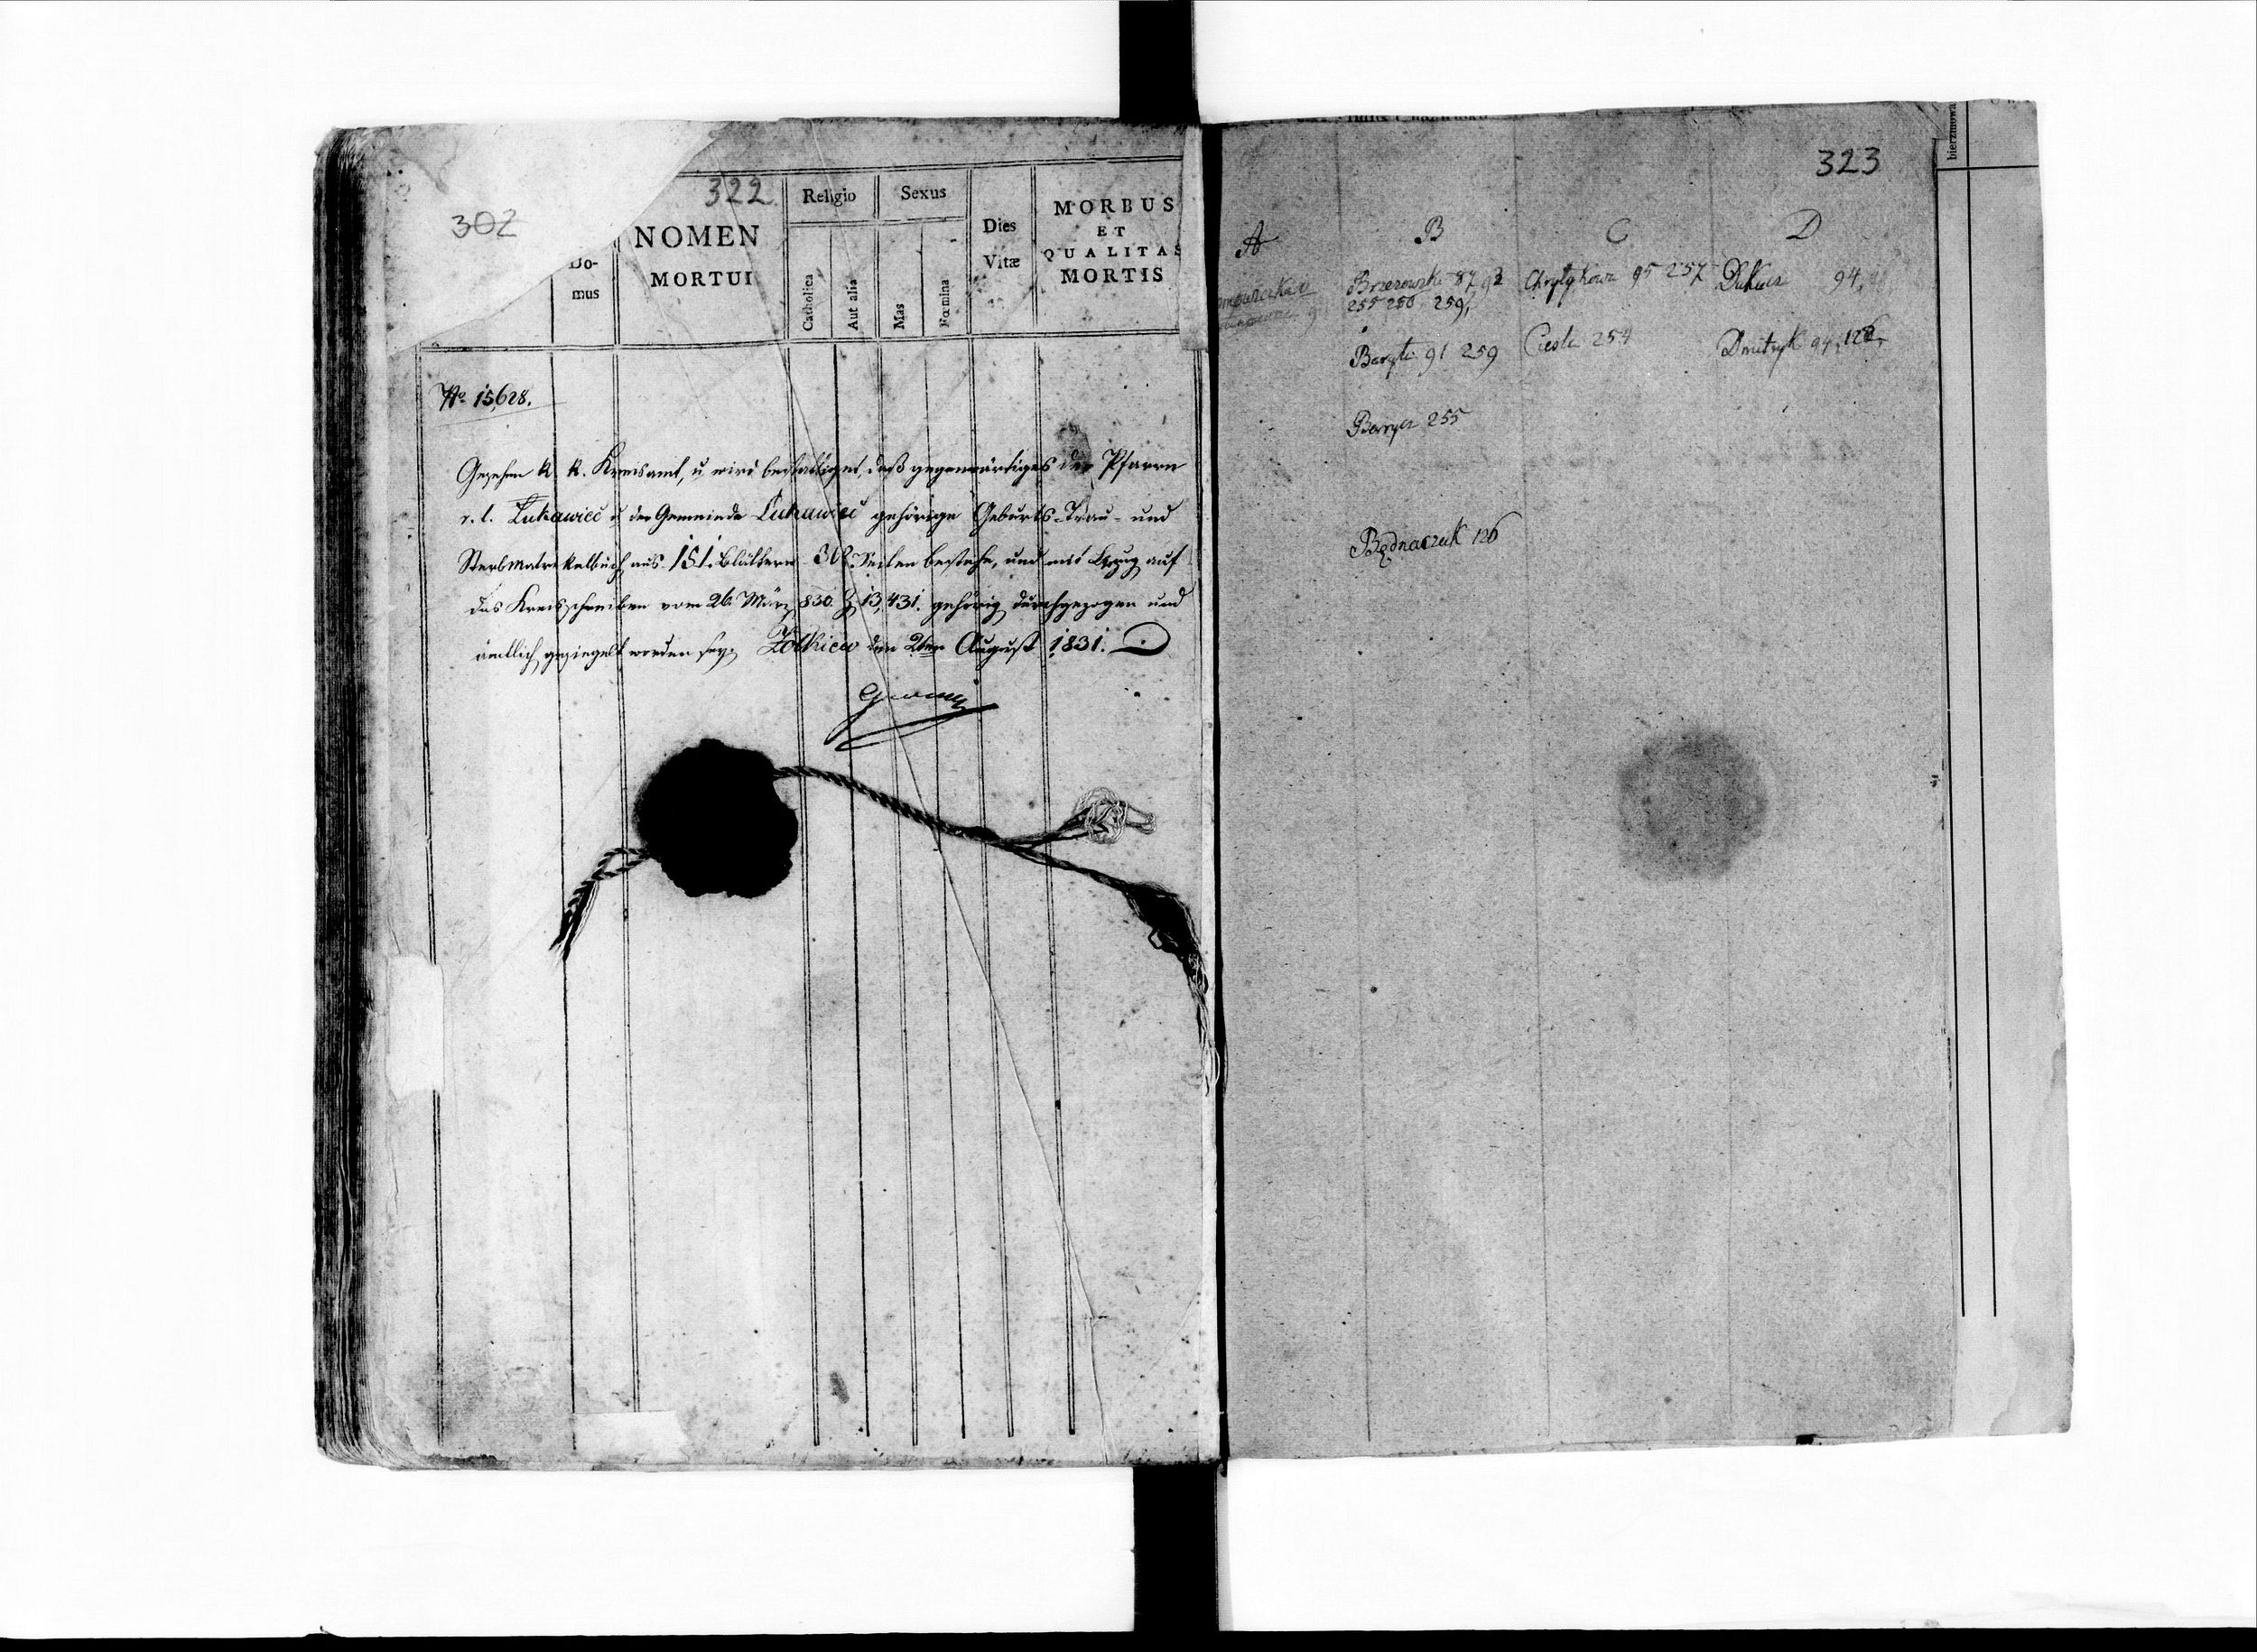 302
322
Do-
mus
NOMEN
MORTUI
Religio
Catholica
Aut alia
Sexus
Mas
Fœmina
Dies
Vitæ
MORBUS
ET
QUALITAS
MORTIS
No 15,628.
Gesehen k. k. Kreisamt, u. wird bestättiget, daß gegenwärtiges der Pfarre
r. l. Łukawiec u der Gemeinde Łukawiec gehörige Geburts-Trau- und
Sterbmatrikelbuch aus 151. Blättern 302 Seiten bestehe, und mit Bezug auf
das Kreisschreiben vom 26. März 830. Z 13,431. gehörig durchgezogen und
ämtlich gesiegelt worden sey. Zołkiew den 2ten August 1831.
323
A
B
Brzezowski 87 92
255 256 259,
Baryła 91 259
Banya 255
Bednaczuk 126
C
95 257
Ciesla 254
D
Dukacz 94,
Dmitryk 94, 128,
bierzmowa